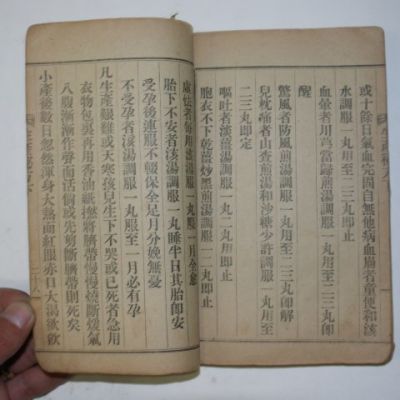 或十餘日氣血完固自無他病血崩者童便和淡
水調服一丸用至二三丸即止
血暈者用當歸煎湯調服一丸用至二三丸即
醒
驚風者防風煎湯調服一丸用至二三丸即解
兒枕痛者山查煎湯和沙糖少許調服一丸用至
二三丸即定
嘔吐者淡薑湯調服一丸二丸即止
胞衣不下乾薑炒黑煎湯調服一丸二丸即止
虛怯者每用淡湯調服一丸服一月全愈
胎下不安者淡湯調服一丸睡半日其胎即安
受孕後連服不輟保全足月分娩無憂
不受孕者淡湯調服一丸服至一月必有孕
凡生產艱難或天寒孩兒生下不哭或已死者急用
衣物包裹再用香油紙撚將臍帶慢慢燒斷煖氣
入腹漸漸作聲而活倘或先剪斷臍帶則死矣
小產後數日忽然渾身大熱面紅眼赤口大渴欲飲